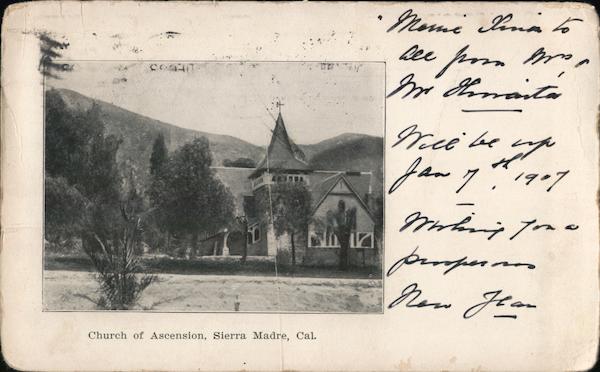 "Merrie Xmas to
All from Mrs &
Mr
Will be up
Jan 7th, 1907
Wishing you a
prosperous
New Year
Church of Ascension, Sierra Madre, Cal.